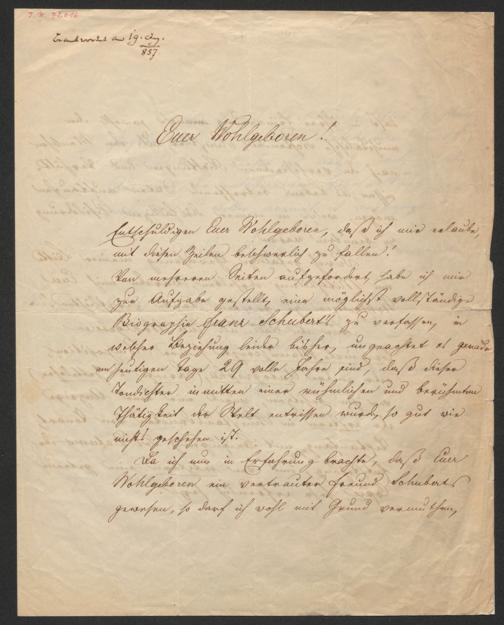 I. N. 92.016
Beantwortet am 19. Aug.
857
Euer Wohlgeboren!
Entschuldigen Euer Wohlgeboren, daß ich mir erlaube,
mit diesen Zeilen beschwerlich zu fallen!
Von mehreren Seiten aufgefordert, habe ich mir
zur Aufgabe gestellt, eine möglichst vollständige
Biographie Franz Schubert's zu verfassen, in
welcher Beziehung leider bisher, ungeachtet es gerade
am heutigen Tage 29 volle Jahre sind, daß dieser
Tondichter inmitten einer rühmlichen und berühmten
Thätigkeit der Welt entrissen wurde, so gut wie
nichts geschehen ist.
Da ich nun in Erfahrung brachte, daß Euer
Wohlgeboren ein vertrauter Freund Schuberts
gewesen, so darf ich wohl mit Grund vermuthen,